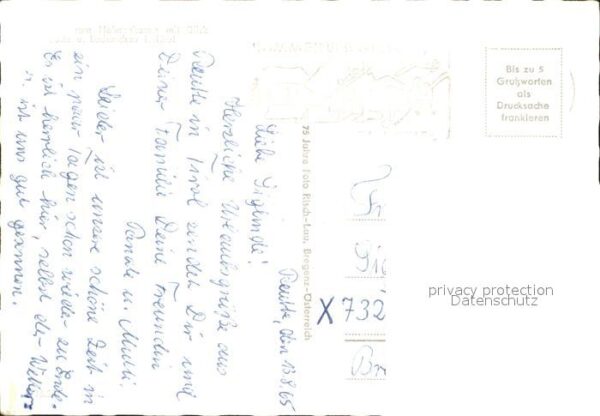 Reutte, den 13.8.65
Liebe Sieglinde!
Herzliche Urlaubsgrüße aus
Reutte in Tirol senden Dir und
Deiner Familie Deine Freundin
u. Mutti.
Leider ist unsere schöne Zeit in
ein paar Tagen schon wieder zu Ende.
Es ist herrlich hier, selbst der Wetter
ist uns gut gesonnen.
75 Jahre Foto Risch-Lau, Bregenz-Österreich
Bis zu 5
Grußworten
als
Drucksache
frankieren
Fr
Sie
X 732
Br
privacy protection
Datenschutz